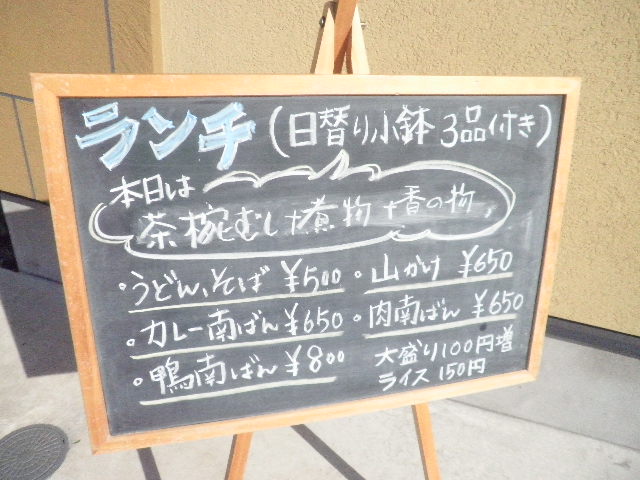 ランチ(日替り小鉢3品付き)
本日は
茶椀むし+煮物+香の物
・うどん、そば ¥500
・山かけ ¥650
・カレー南ばん ¥650
・肉南ばん ¥650
・鴨南ばん ¥800
大盛り100円増
ライス150円